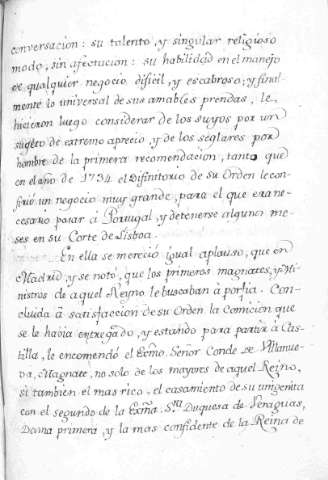 conversacion: su talento, y singular religioso
modo, sin afectacion: su habilidad en el manejo
de qualquier negocio dificil, y escabroso; y final-
mente lo universal de sus amables prendas, le
hicieron luego considerar de los suyos por un
sugeto de extremo aprecio, y de los seglares por
hombre de la primera recomendacion, tanto que
en el año de 1734. el Difinitorio de su Orden le con-
firió un negocio muy grande, para el que era ne-
cesario pasar á Portugal, y detenerse algunos me-
ses en su Corte de Lisboa.
En ella se mereció igual aplauso, que en
Madrid, y se notó, que los primeros magnates, y Mi-
nistros de aquel Reyno le buscaban á porfia. Con-
cluida á satisfaccion de su Orden la Comicion que
se le habia entregado, y estando para partir á Cas-
tilla, le encomendó el Exmo. Señor Conde de Villanue-
va, Magnate, no solo de los mayores de aquel Reino,
si tambien el mas rico, el casamiento de su unigenita
con el segundo de la Exma. S.ra Duquesa de Veraguas,
Donna primera, y la mas confidente de la Reina de